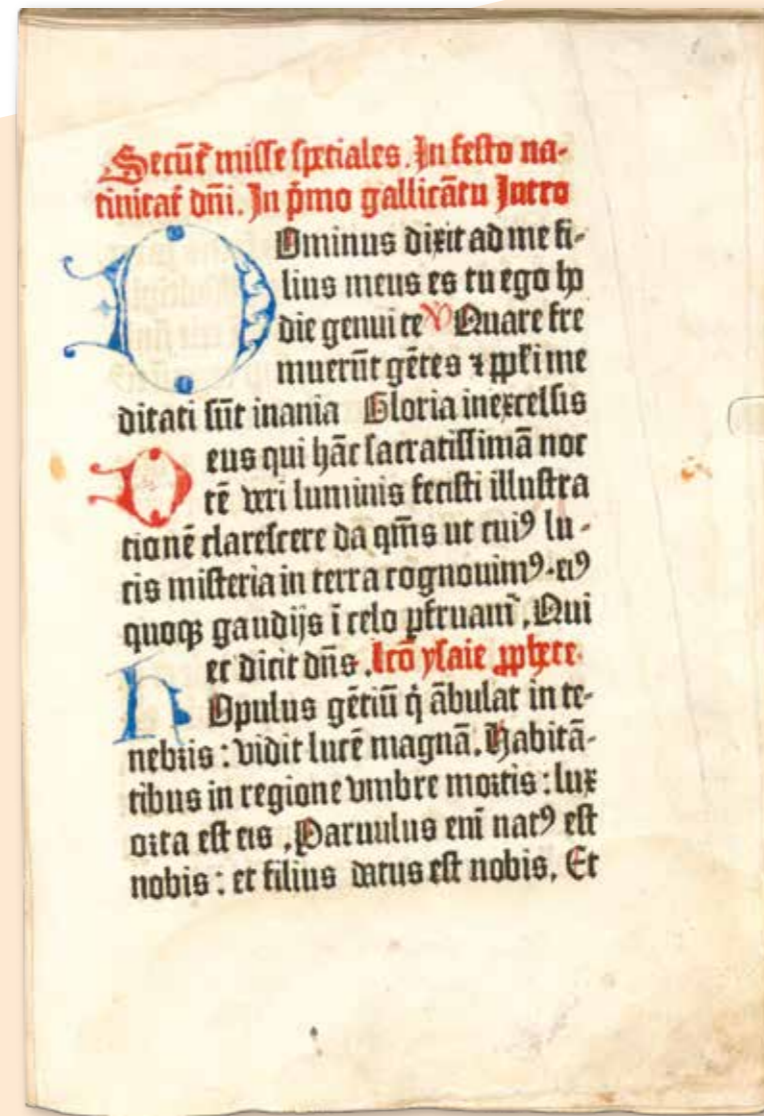 Secūt̄ misse speciales. In festo na-
tiuitat̄ dn̄i. In p̄mo gallicātu Intro
DOminus dixit ad me fi-
lius meus es tu ego ho
die genui te V Quare fre
muerūt gētes ⁊ ppl̄i me
ditati sūt inania Gloria inexcelsis
Deus qui hāc sacratissimā noc
tē veri luminis fecisti illustra
tionē clarescere da qm̄s ut cuiꝰ lu-
cis misteria in terra cognouimꝰ. eiꝰ
quoqꝫ gaudijs ī celo pfruam̄. Qui
Hec dicit dn̄s. Lcō ysaie ꝓphete.
Opulus gētiū q̄ ābulat in te-
nebris : vidit lucē magnā. Habitā-
tibus in regione vmbre mortis : lux
orta est eis . Paruulus eni̅ natꝰ est
nobis : et filius datus est nobis. Et